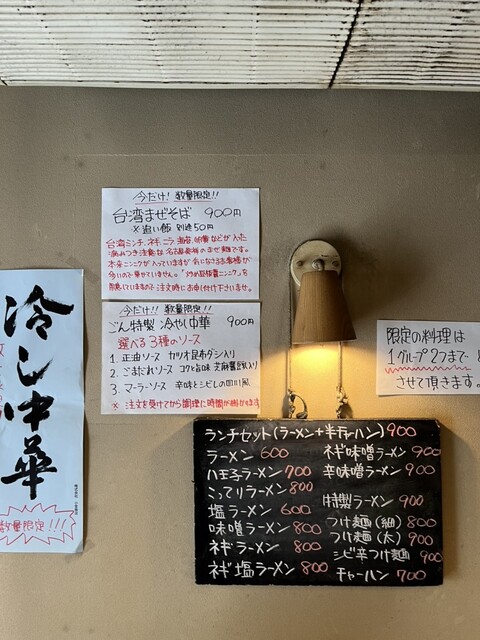 今だけ! 数量限定!!
台湾まぜそば 900円
※追い飯 別途50円
台湾ミンチ、ネギ、ニラ、海苔、卵黄などが入った
名古屋発祥のまぜ麺です。
本来ニンニクが入っていますが 気になさるお客様が
多いので乗せていません。
ニンニク」を
注文時にお申し付け下さいませ。
今だけ!! 数量限定!!
ごん特製 冷やし中華 900円
選べる3種のソース
1. 正油ソース カツオ昆布ダシ入り
2. ごまだれソース コクと旨味 芝麻醤入り
3. マーラーソース 辛味とシビレの四川風
※ 注文を受けてから調理に時間が掛かります
冷し中華
数量限定!!!
限定の料理は
1グループ2つまで
させて頂きます。
ランチセット(ラーメン+半チャーハン) 900
ラーメン 600
八王子ラーメン 700
こってりラーメン 800
塩ラーメン 600
味噌ラーメン 800
ネギラーメン 800
ネギ塩ラーメン 800
ネギ味噌ラーメン 900
辛味噌ラーメン 900
特製ラーメン 900
つけ麺(細) 800
つけ麺(太) 900
シビ辛つけ麺 900
チャーハン 700